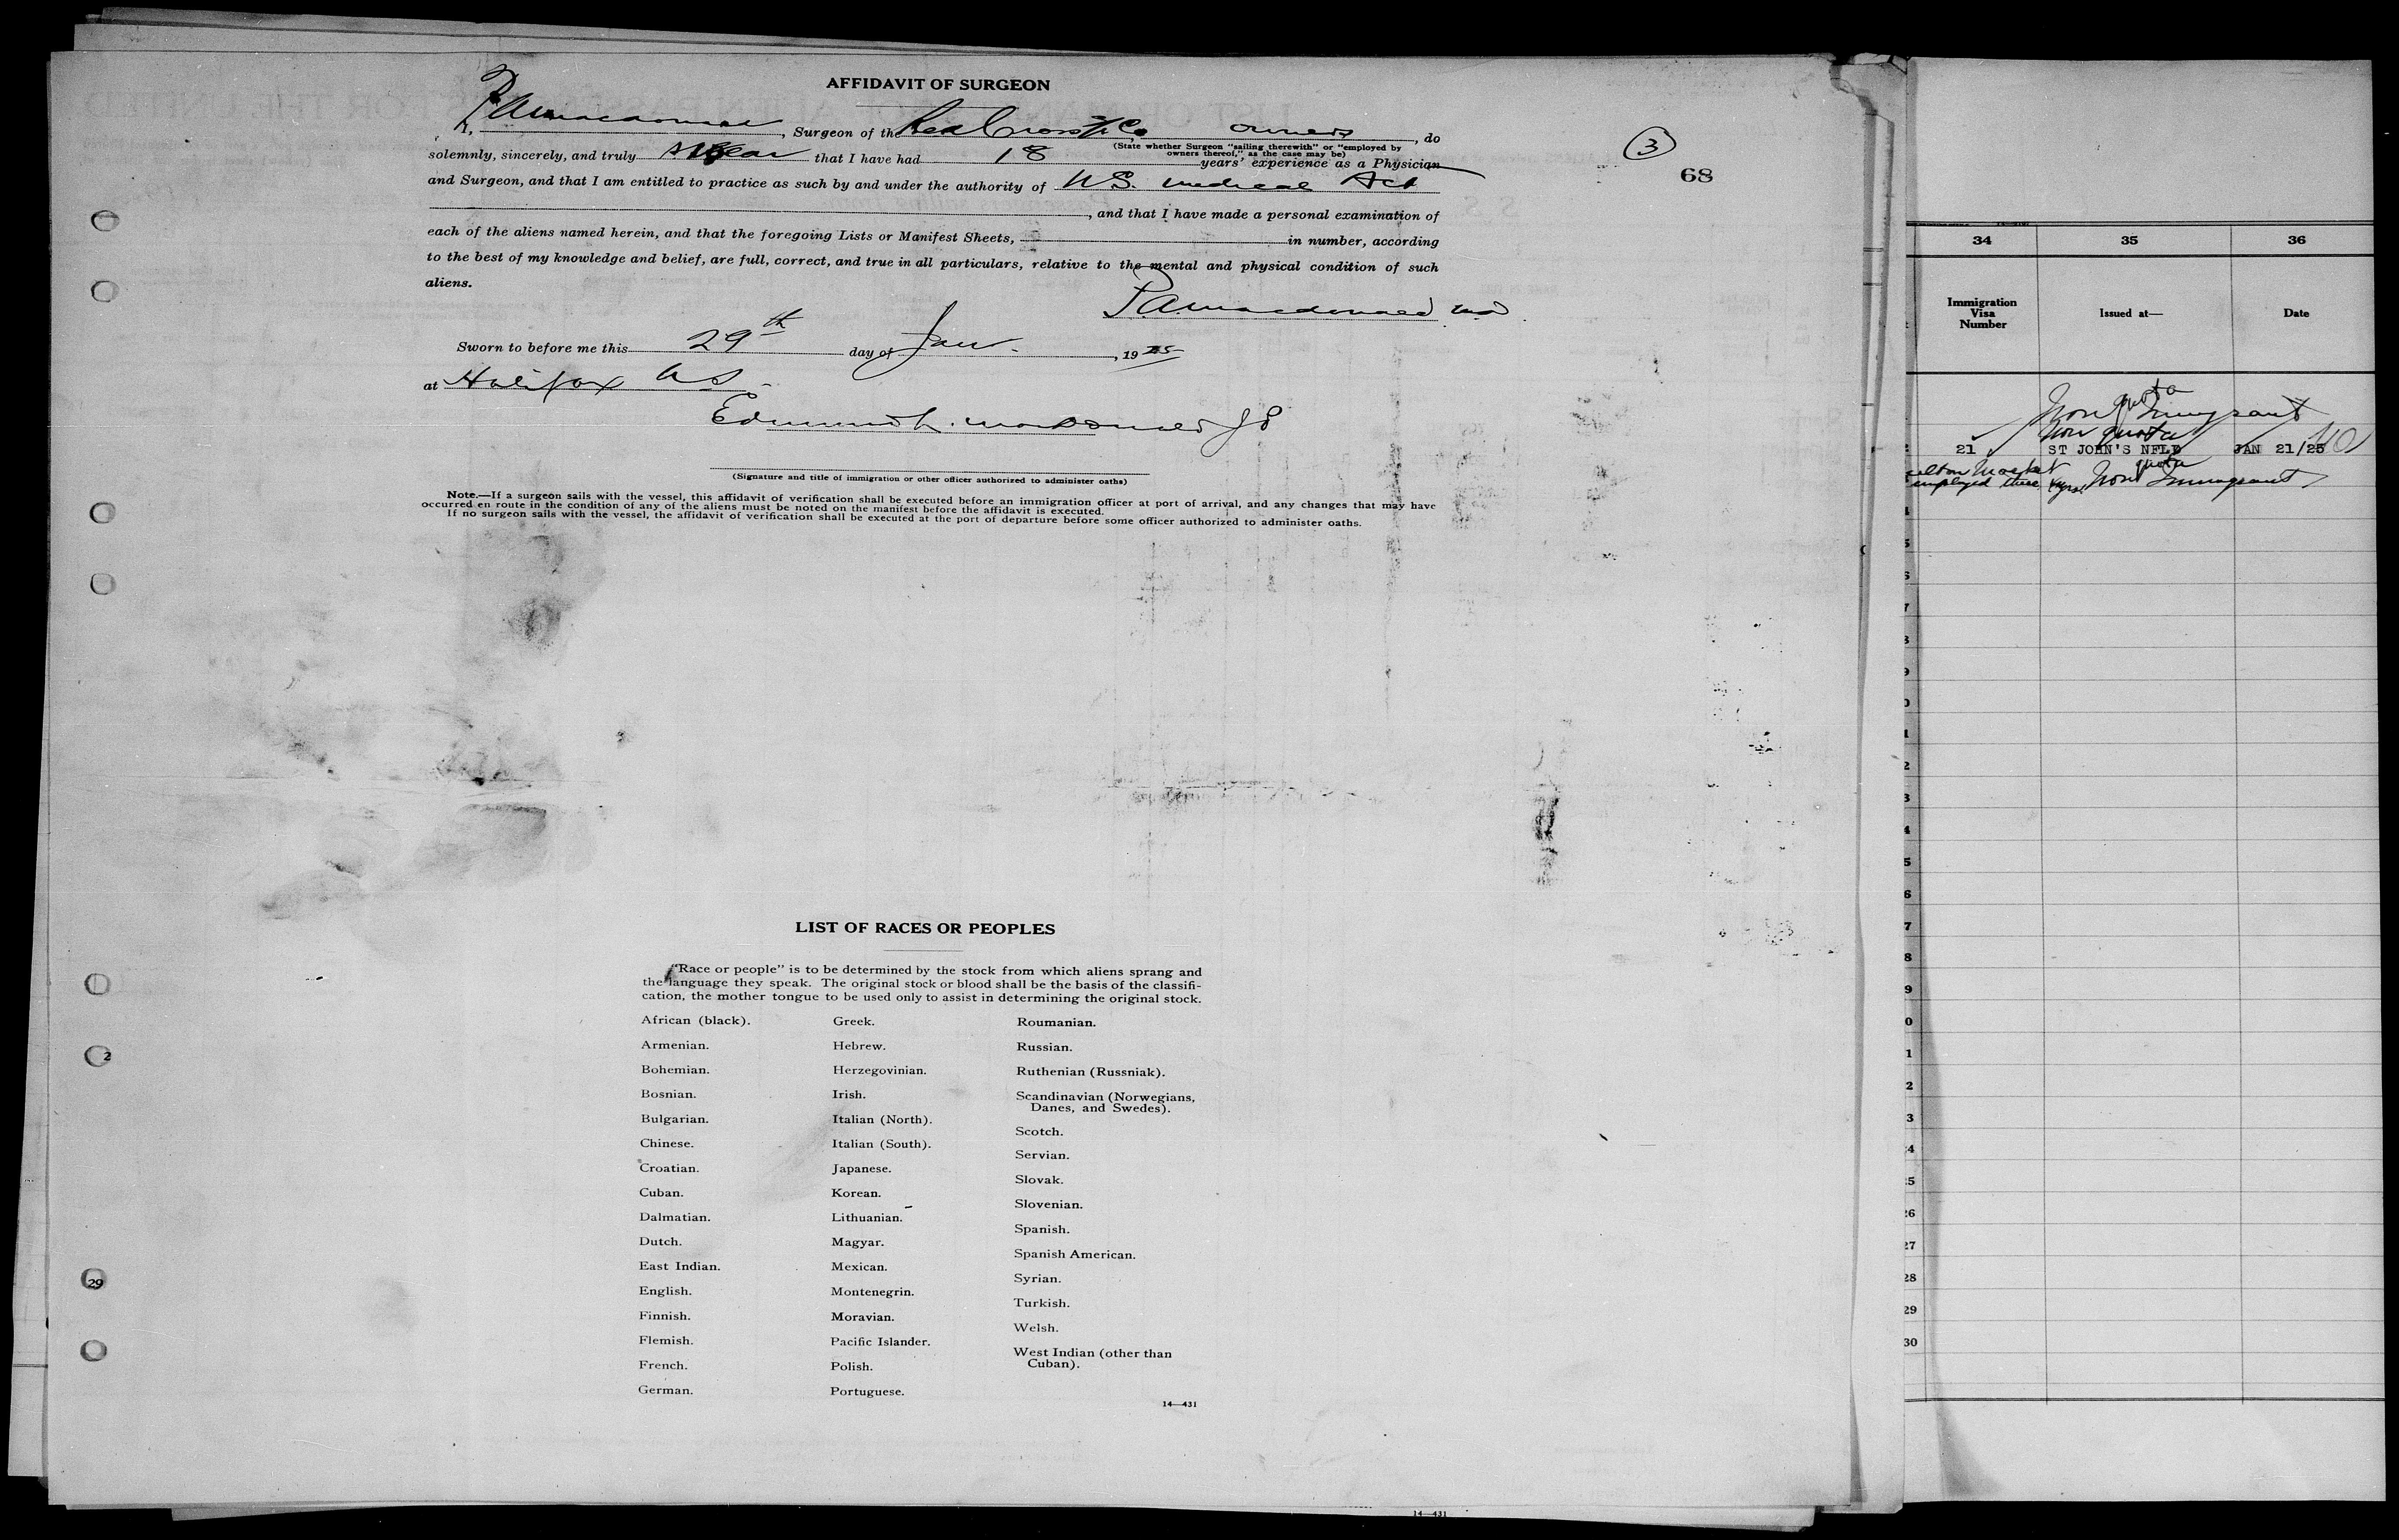 AFFIDAVIT OF SURGEON
I, P A Macdonald, Surgeon of the Red Cross Co owners, do
(State whether Surgeon "sailing therewith" or "employed by
owners thereof," as the case may be)
solemnly, sincerely, and truly swear that I have had 18 years' experience as a Physician
and Surgeon, and that I am entitled to practice as such by and under the authority of N.S. Medical Act
, and that I have made a personal examination of
each of the aliens named herein, and that the foregoing Lists or Manifest Sheets, in number, according
to the best of my knowledge and belief, are full, correct, and true in all particulars, relative to the mental and physical condition of such
aliens.
P A Macdonald MD
Sworn to before me this 29th day of Jan. , 19 25
at Halifax NS
Macdonald JP
(Signature and title of immigration or other officer authorized to administer oaths)
Note.—If a surgeon sails with the vessel, this affidavit of verification shall be executed before an immigration officer at port of arrival, and any changes that may have
occurred en route in the condition of any of the aliens must be noted on the manifest before the affidavit is executed.
If no surgeon sails with the vessel, the affidavit of verification shall be executed at the port of departure before some officer authorized to administer oaths.
3
68
LIST OF RACES OR PEOPLES
"Race or people" is to be determined by the stock from which aliens sprang and
the language they speak. The original stock or blood shall be the basis of the classifi-
cation, the mother tongue to be used only to assist in determining the original stock.
African (black).
Armenian.
Bohemian.
Bosnian.
Bulgarian.
Chinese.
Croatian.
Cuban.
Dalmatian.
Dutch.
East Indian.
English.
Finnish.
Flemish.
French.
German.
Greek.
Hebrew.
Herzegovinian.
Irish.
Italian (North).
Italian (South).
Japanese.
Korean.
Lithuanian.
Magyar.
Mexican.
Montenegrin.
Moravian.
Pacific Islander.
Polish.
Portuguese.
Roumanian.
Russian.
Ruthenian (Russniak).
Scandinavian (Norwegians,
Danes, and Swedes).
Scotch.
Servian.
Slovak.
Slovenian.
Spanish.
Spanish American.
Syrian.
Turkish.
Welsh.
West Indian (other than
Cuban).
14—431
2
29
14—431
34 35 36
Immigration
Visa
Number
Issued at—
Date
Non quota Immigrant
Non quota
21 ST JOHN'S NFLD JAN 21/25
Market
employed three yrs. Non quota Immigrant
5
6
7
8
9
0
1
2
3
4
5
6
7
8
9
0
1
2
3
24
25
26
27
28
29
30